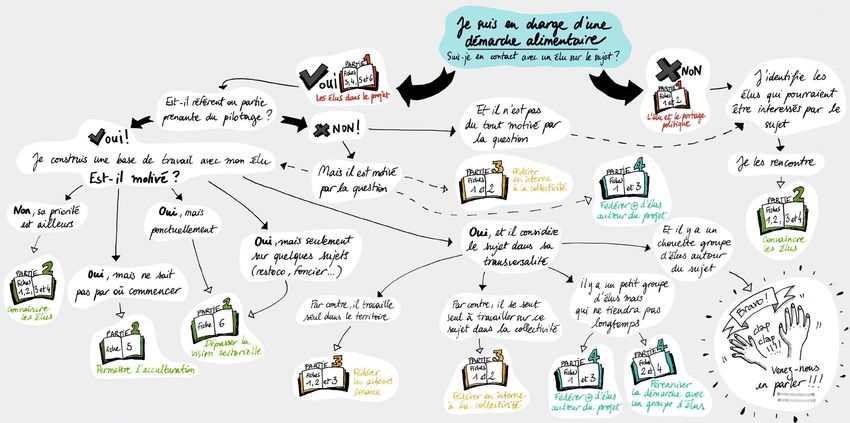 Je suis en charge d'une
démarche alimentaire
Suis-je en contact avec un élu sur le sujet ?
oui
PARTIE 1
Fiches
3, 4, 5 et 6
Les élus dans le projet
NON
PARTIE 1
Fiches
1 et 2
L'élu et le portage
politique
J'identifie les
élus qui pourraient
être intéressés par le
sujet
Je les rencontre
PARTIE 2
Fiches
1, 2, 3 et 4
Convaincre
les élus
Est-il référent ou partie
prenante du pilotage ?
oui !
NON !
Et il n'est pas
du tout motivé par
la question
Mais il est motivé
par la question
PARTIE 3
Fiches
1 et 2
Fédérer
en interne
à la collectivité
PARTIE 4
Fiches
1 et 3
Fédérer + d'élus
autour du projet
Je construis une base de travail avec mon élu
Est-il motivé ?
Non, sa priorité
est ailleurs
PARTIE 2
Fiches
1, 2, 3 et 4
Convaincre
les élus
Oui, mais ne sait
pas par où commencer
PARTIE 2
Fiche 5
Permettre l'acculturation
Oui, mais
ponctuellement
Oui, mais seulement
sur quelques sujets
(restoco, foncier...)
PARTIE 2
Fiche 6
Dépasser la
vision sectorielle
Oui, et il considère
le sujet dans sa
transversalité
Par contre, il travaille
seul dans le territoire
PARTIE 3
Fiches
1, 2 et 3
Fédérer
les acteurs
locaux
Par contre, il se sent
seul à travailler sur ce
sujet dans la collectivité
PARTIE 3
Fiches
1 et 2
Fédérer en interne
à la collectivité
il y a un petit groupe
d'élus mais
qui ne tiendra pas
longtemps
PARTIE 4
Fiches
1 et 3
Fédérer + d'élus
autour du projet
PARTIE 4
Fiches
2 et 4
Pérenniser
la démarche avec
un groupe d'élus
Et il y a un
chouette groupe
d'élus autour
du sujet
Bravo !
clap
clap
!!!!
Venez-nous
en parler !!!